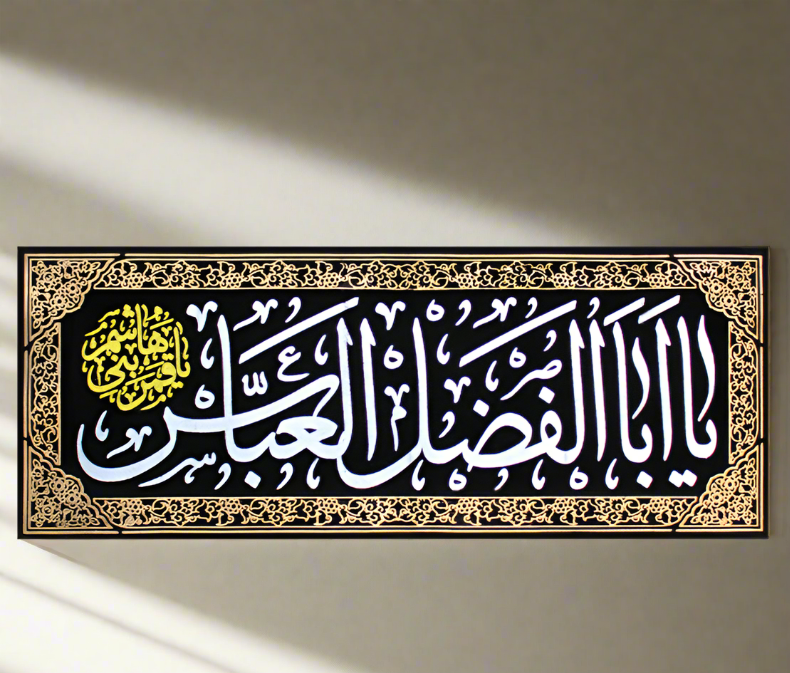 يا ابا الفضل العباس
يا قمر بني هاشم